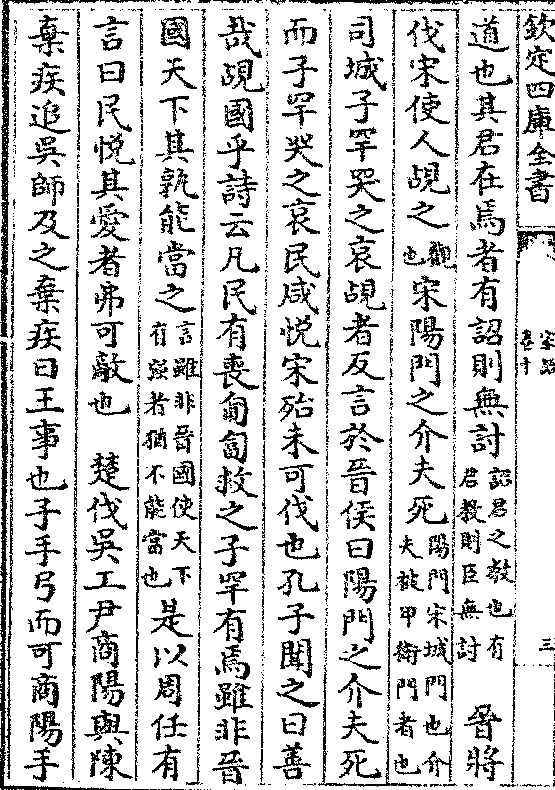 欽定四庫全書
家語
卷十
三
道也其君在焉者有詔則無討詔君之教也有君教則臣無討　晉將
伐宋使人覘之觀也宋陽門之介夫死陽門宋城門也介夫被甲衛門者也
司城子罕哭之哀覘者反言於晉侯曰陽門之介夫死
而子罕哭之哀民咸悅宋殆未可伐也孔子聞之曰善
哉覘國乎詩云凡民有喪匍匐救之子罕有焉雖非晉
國天下其孰能當之言雖非晉國使天下有強者猶不能當也是以周任有
言曰民悅其愛者弗可敵也　楚伐吳工尹商陽與陳
棄疾追吳師及之棄疾曰王事也子手弓而可商陽手